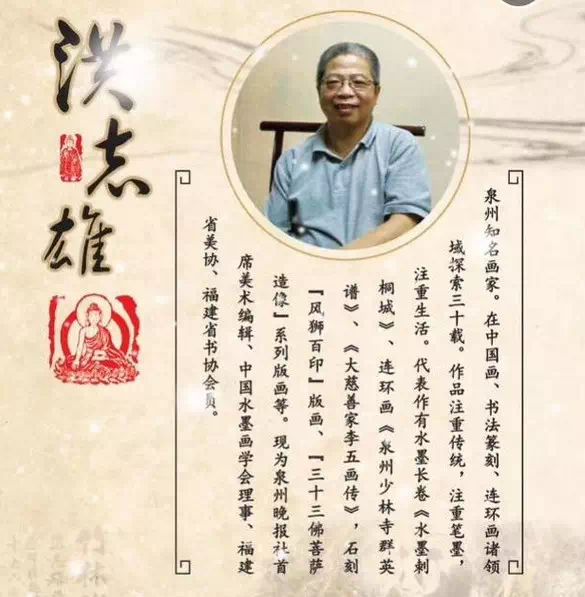 洪志雄
泉州知名画家。在中国画、书法篆刻、连环画诸领
域探索三十载。作品注重传统，注重笔墨，
注重生活。代表作有水墨长卷《水墨刺
桐城》、连环画《泉州少林寺群英
谱》、《大慈善家李五画传》，石刻
『风狮百印』版画、『三十三佛菩萨
造像』系列版画等。现为泉州晚报社首
席美术编辑、中国水墨画学会理事、福建
省美协、福建省书协会员。